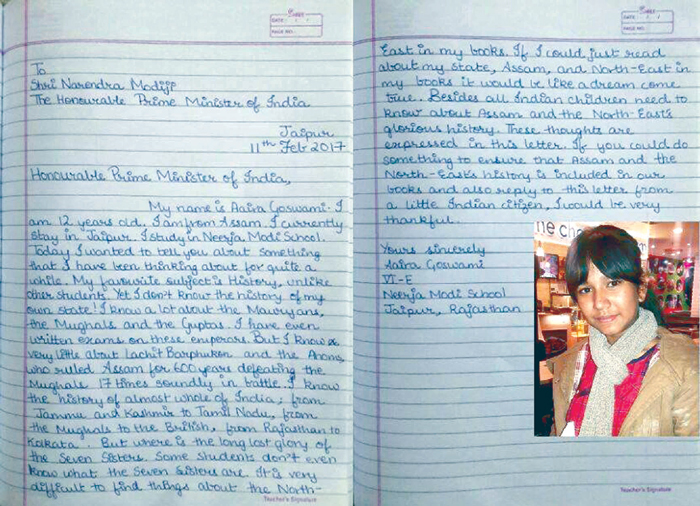 DATE: / /
PAGE NO.:
To
Shri Narendra Modiji
The Honourable Prime Minister of India
Jaipur
11th Feb 2017
Honourable Prime Minister of India,
My name is Aaira Goswami. I
am 12 years old. I am from Assam. I currently
stay in Jaipur. I study in Neerja Modi School.
Today I wanted to tell you about something
that I have been thinking about for quite a
while. My favourite subject is History, unlike
other students. Yet I don't know the history of my
own state! I know a lot about the Mauryans,
the Mughals and the Guptas. I have even
written exams on these emperors. But I know
very little about Lachit Barphukon and the Ahoms,
who ruled Assam for 600 years defeating the
Mughals 17 times soundly in battle. I know
the history of almost whole of India, from
Jammu and Kashmir to Tamil Nadu, from
the Mughals to the British, from Rajasthan to
Kolkata. But where is the long lost glory of
the Seven Sisters. Some students don't even
know what the Seven Sisters are. It is very
difficult to find things about the North-
Teacher's Signature
DATE: / /
PAGE NO.:
East in my books. If I could just read
about my state, Assam, and North-East in
my books it would be like a dream come
true. Besides all Indian children need to
know about Assam and the North-East's
glorious history. These thoughts are
expressed in this letter. If you could do
something to ensure that Assam and the
North-East's history is included in our
books and also reply to this letter from
a little Indian citizen, I would be very
thankful.
Yours sincerely
Aaira Goswami
VI-E
Neerja Modi School
Jaipur, Rajasthan
ne cha
Teacher's Signature